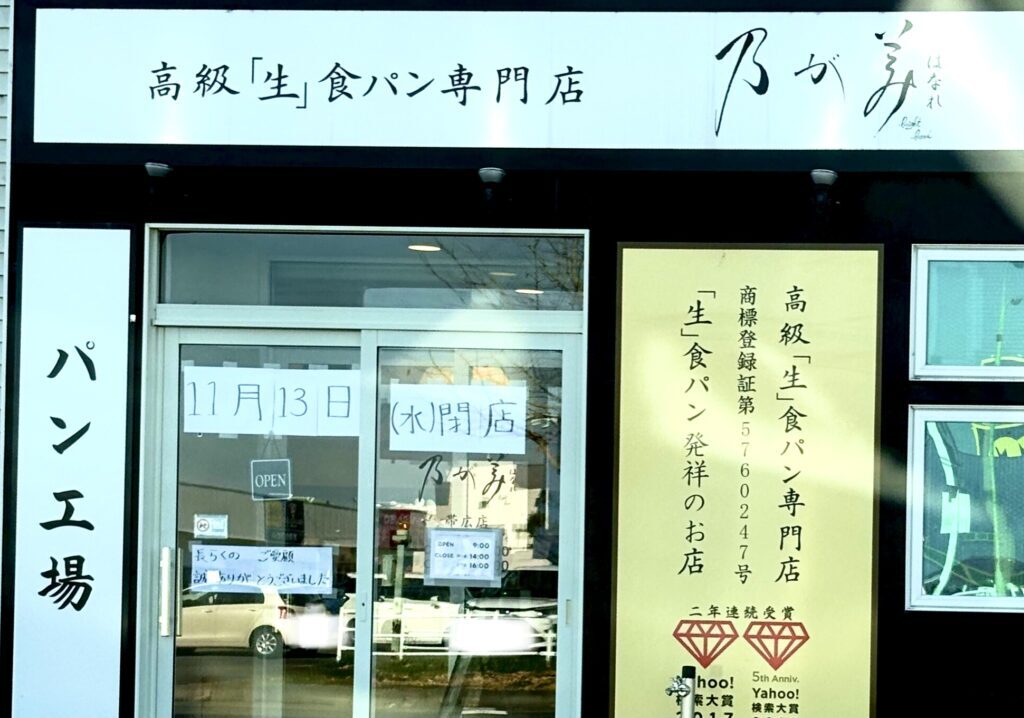 高級「生」食パン専門店
乃が美
はなれ
パン工場
11月13日
(水)閉店
OPEN
乃が美
はなれ
帯広店
OPEN 9:00
CLOSE 14:00
16:00
長らくの ご愛顧
ありがとうございました
高級「生」食パン専門店
商標登録証第5760247号
「生」食パン発祥のお店
二年連続受賞
hoo!
検索大賞
2017
5th Anniv.
Yahoo!
検索大賞